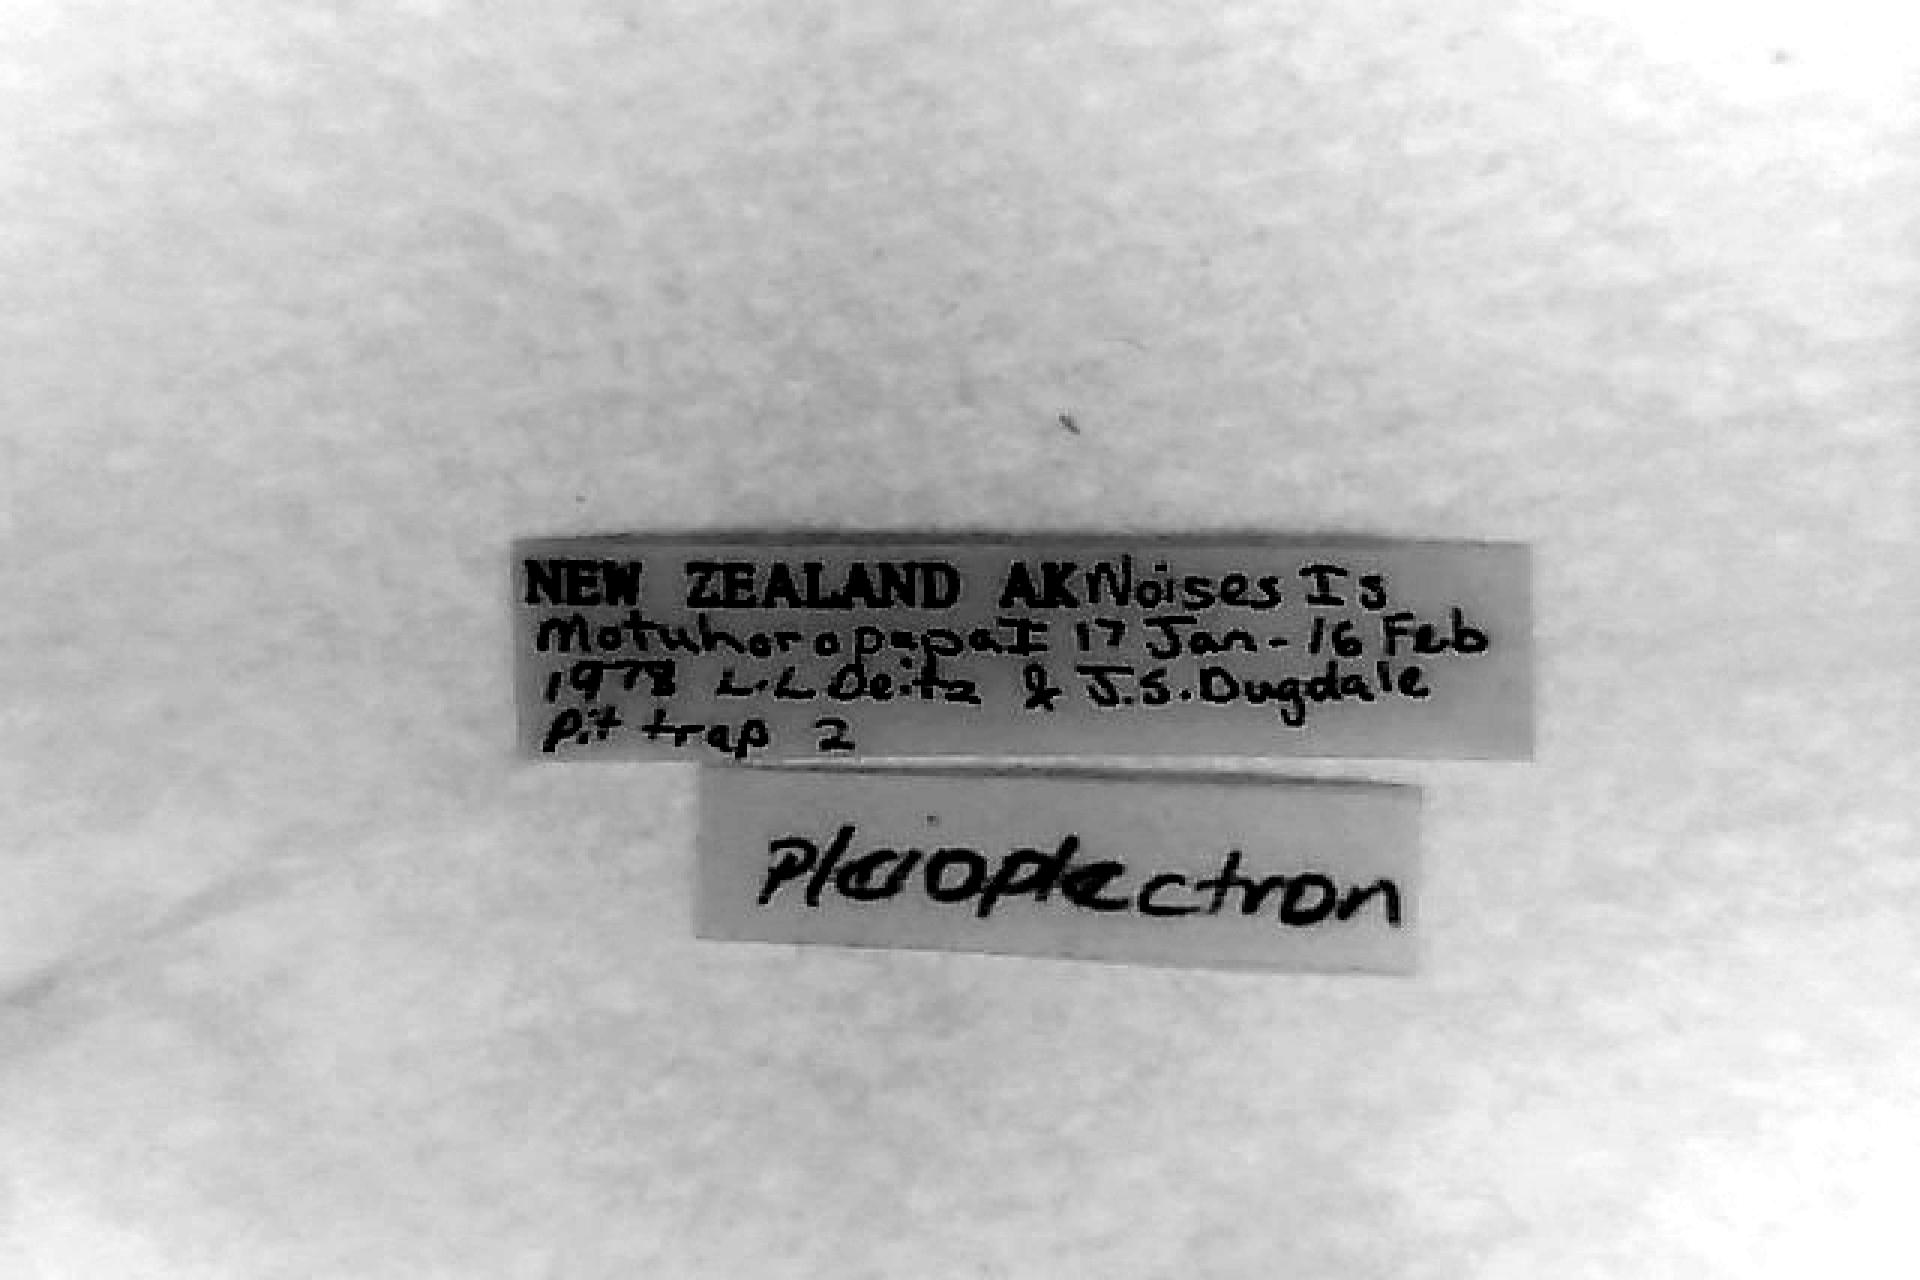 NEW ZEALAND AK Noises Is
Motuhoropapa I 17 Jan - 16 Feb
1978 L.L Deitz & J.S. Dugdale
Pit trap 2
Pleioplectron